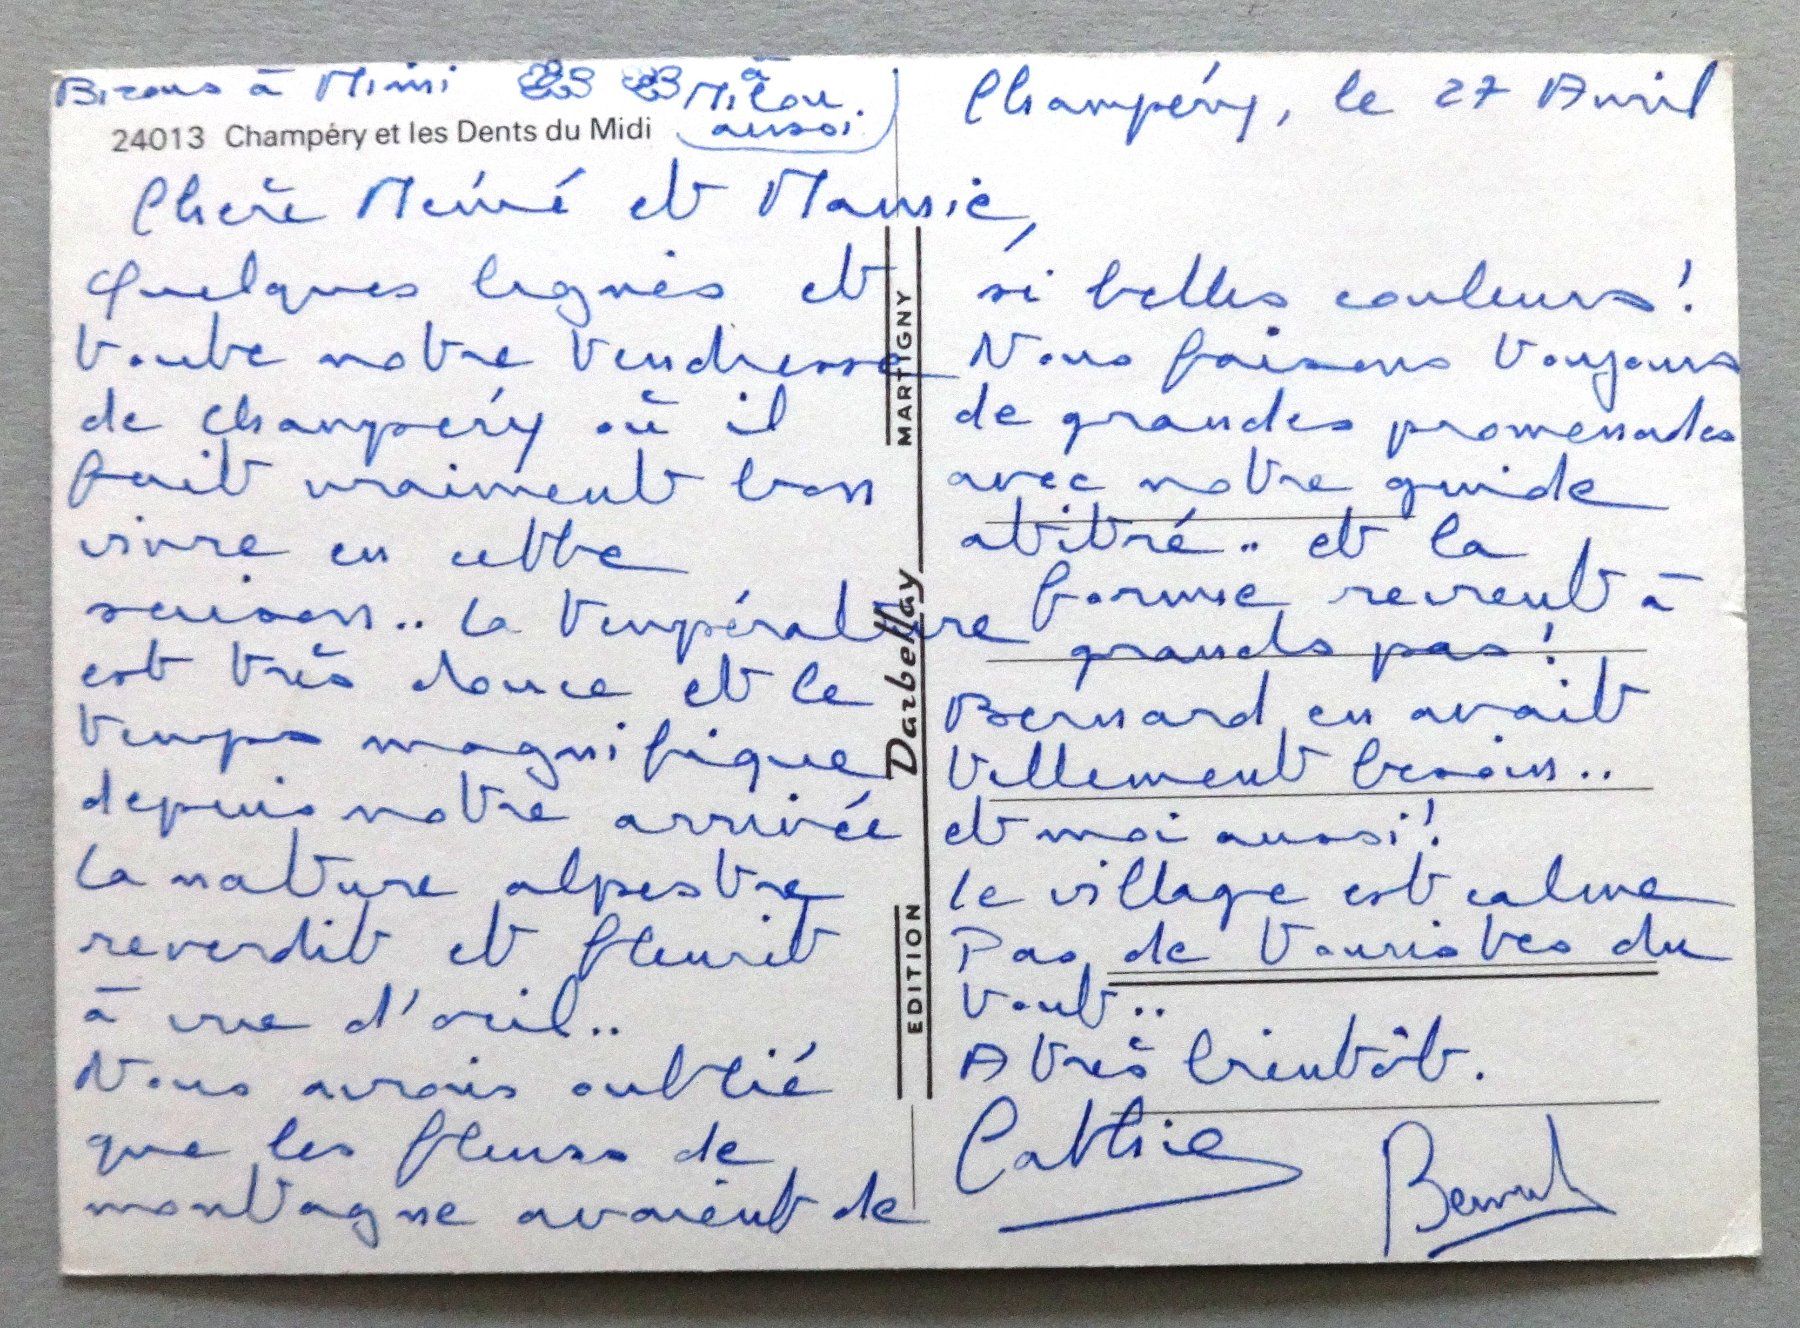 Bisous à Mimi
à Milou
aussi.
24013 Champéry et les Dents du Midi
Champéry, le 27 Avril
Chère Mémé et Mamie,
Quelques lignes et
toute notre tendresse
de Champéry où il
fait vraiment bon
vivre en cette
saison.. La température
est très douce et le
temps magnifique
depuis notre arrivée
La nature alpestre
reverdit et fleurit
à vue d'oeil..
Nous avions oublié
que les fleurs de
montagne avaient de
si belles couleurs!
Nous faisons toujours
de grandes promenades
avec notre guide
attitré.. et la
forme revient à
grands pas!
Bernard en avait
tellement besoin..
et moi aussi!
Le village est calme
Pas de touristes du
tout..
A très bientôt.
Cathie
Bernard
EDITION Darbellay MARTIGNY